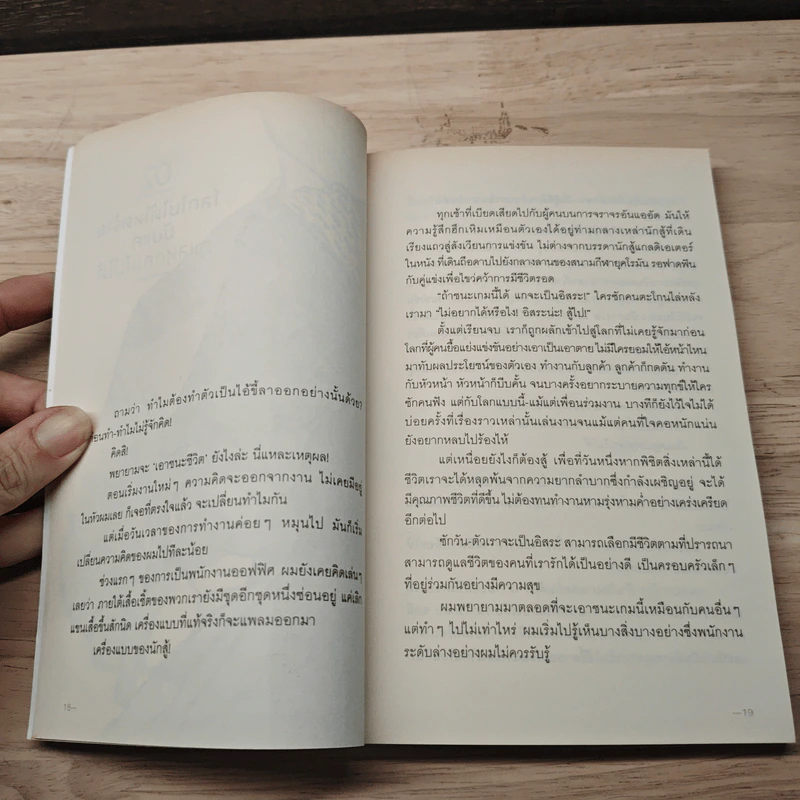 ถามว่า ทำไมต้องทำตัวเป็นไอ้ขี้ลาออกอย่างนั้นด้วย?
ก่อนทำ-ทำไมไม่รู้จักคิด!
คิดสิ!
พยายามจะ ‘เอาชนะชีวิต’ ยังไงล่ะ นี่แหละเหตุผล!
ตอนเริ่มงานใหม่ๆ ความคิดจะออกจากงาน ไม่เคยมีอยู่
ในหัวผมเลย ก็เจอที่ตรงใจแล้ว จะเปลี่ยนทำไมกัน
แต่เมื่อวันเวลาของการทำงานค่อยๆ หมุนไป มันก็เริ่ม
เปลี่ยนความคิดของผมไปทีละน้อย
ช่วงแรกๆ ของการเป็นพนักงานออฟฟิศ ผมยังเคยคิดเล่นๆ
เลยว่า ภายใต้เสื้อเชิ้ตของพวกเรายังมีชุดอีกชุดหนึ่งซ่อนอยู่ แค่เลิก
แขนเสื้อขึ้นสักนิด เครื่องแบบที่แท้จริงก็จะแพลมออกมา
เครื่องแบบของนักสู้!
18—
ทุกเช้าที่เบียดเสียดไปกับผู้คนบนการจราจรอันแออัด มันให้
ความรู้สึกฮึกเหิมเหมือนตัวเองได้อยู่ท่ามกลางเหล่านักสู้ที่เดิน
เรียงแถวสู่สังเวียนการแข่งขัน ไม่ต่างจากบรรดานักสู้แกลดิเอเตอร์
ในหนัง ที่เดินถือดาบไปยังกลางลานของสนามกีฬายุคโรมัน รอฟาดฟัน
กับคู่แข่งเพื่อไขว่คว้าการมีชีวิตรอด
“ถ้าชนะเกมนี้ได้ แกจะเป็นอิสระ!” ใครซักคนตะโกนไล่หลัง
เรามา “ไม่อยากได้หรือไง! อิสระน่ะ! สู้ไป!”
ตั้งแต่เรียนจบ เราก็ถูกผลักเข้าไปสู่โลกที่ไม่เคยรู้จักมาก่อน
โลกที่ผู้คนยื้อแย่งแข่งขันอย่างเอาเป็นเอาตาย ไม่มีใครยอมให้ไอ้หน้าไหน
มาทับผลประโยชน์ของตัวเอง ทำงานกับลูกค้า ลูกค้าก็กดดัน ทำงาน
กับหัวหน้า หัวหน้าก็บีบคั้น จนบางครั้งอยากระบายความทุกข์ให้ใคร
ซักคนฟัง แต่กับโลกแบบนี้-แม้แต่เพื่อนร่วมงาน บางทีก็ยังไว้ใจไม่ได้
บ่อยครั้งที่เรื่องราวเหล่านั้นเล่นงานจนแม้แต่คนที่ใจคอหนักแน่น
ยังอยากหลบไปร้องไห้
แต่เหนื่อยยังไงก็ต้องสู้ เพื่อที่วันหนึ่งหากพิชิตสิ่งเหล่านี้ได้
ชีวิตเราจะได้หลุดพ้นจากความยากลำบากซึ่งกำลังเผชิญอยู่ จะได้
มีคุณภาพชีวิตที่ดีขึ้น ไม่ต้องทนทำงานหามรุ่งหามค่ำอย่างเคร่งเครียด
อีกต่อไป
ซักวัน-ตัวเราจะเป็นอิสระ สามารถเลือกมีชีวิตตามที่ปรารถนา
สามารถดูแลชีวิตของคนที่เรารักได้เป็นอย่างดี เป็นครอบครัวเล็กๆ
ที่อยู่ร่วมกันอย่างมีความสุข
ผมพยายามมาตลอดที่จะเอาชนะเกมนี้เหมือนกับคนอื่นๆ
แต่ทำๆ ไปไม่เท่าไหร่ ผมเริ่มไปรู้เห็นบางสิ่งบางอย่างซึ่งพนักงาน
ระดับล่างอย่างผมไม่ควรรับรู้
—19